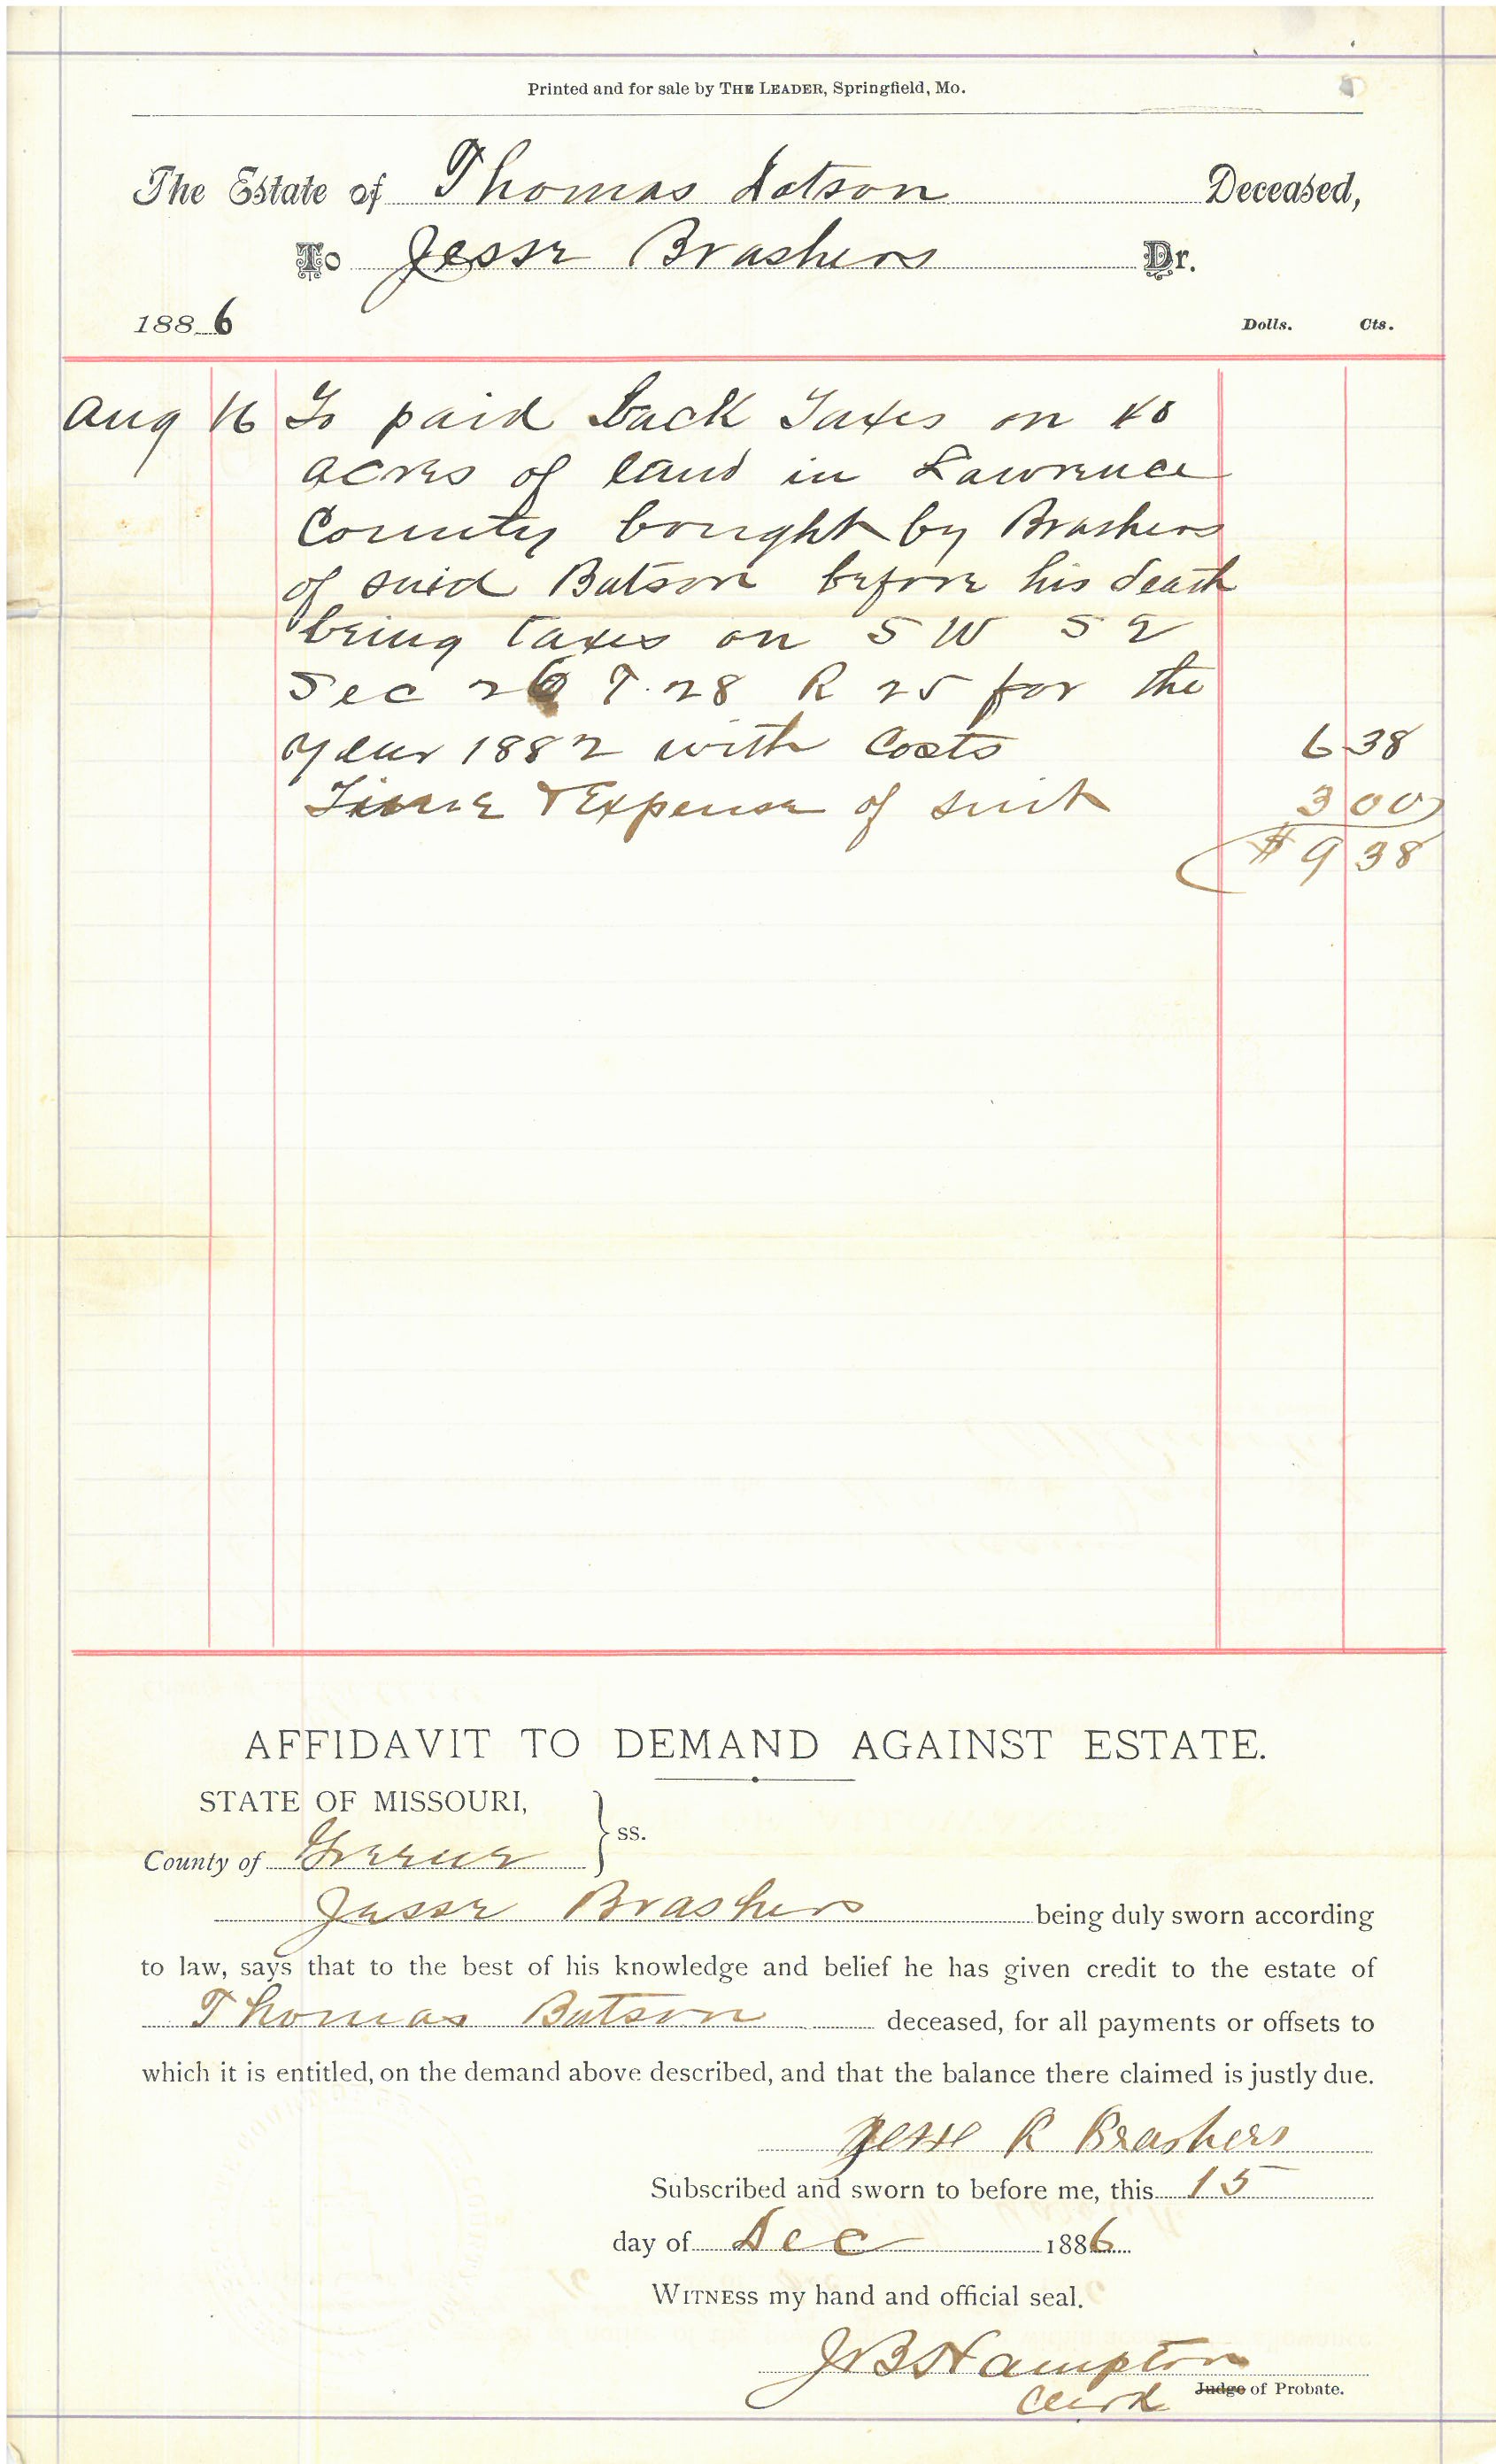 Printed and for sale by THE LEADER, Springfield, Mo.
The Estate of Thomas Batson Deceased,
To Jesse Brashers Dr.
1886 Dolls. Cts.
Aug 16 To paid back Taxes on 40
acres of land in Lawrence
County bought by Brashers
of said Batson before his death
being taxes on S W S E
Sec 26 T. 28 R 25 for the
year 1882 with Costs 6 38
Time & Expense of suit 3 00
$ 9 38
AFFIDAVIT TO DEMAND AGAINST ESTATE.
STATE OF MISSOURI,
County of Greene } ss.
Jesse Brashers being duly sworn according
to law, says that to the best of his knowledge and belief he has given credit to the estate of
Thomas Batson deceased, for all payments or offsets to
which it is entitled, on the demand above described, and that the balance there claimed is justly due.
Jesse R Brashers
Subscribed and sworn to before me, this 15
day of Dec 1886
WITNESS my hand and official seal.
J B Hampton
Clerk Judge of Probate.